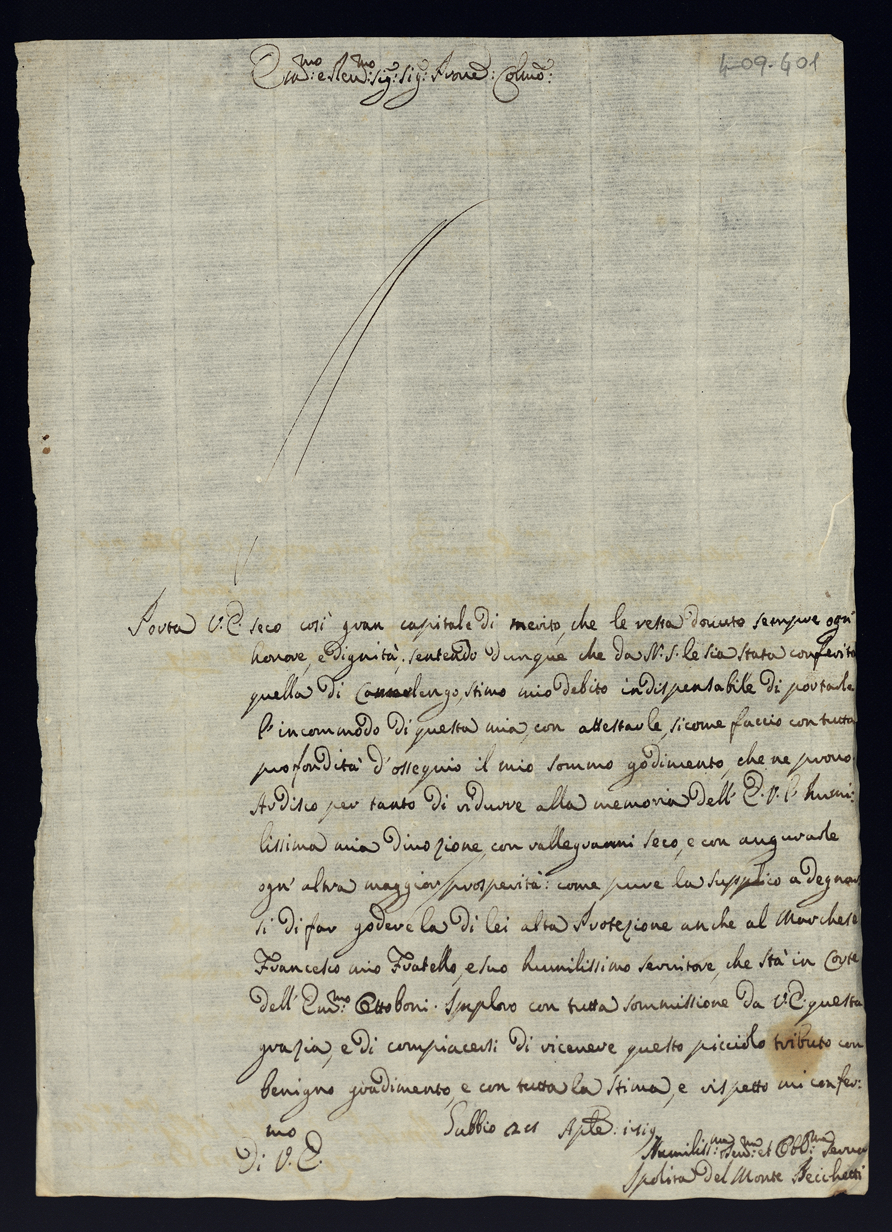 4-09-401
Em.mo: e Rev.mo: Sig: Sig: Prone: Colmo:
Porta V.E. seco così gran capitale di merito, che le resta dovuto sempre ogn'
honore, e dignità; sentendo dunque che da N.S. le sia stata conferita
quella di Camerlengo, stimo mio debito indispensabile di portarle
l'incommodo di questa mia, con attestarle, sicome faccio con tutta
profondità d'ossequio il mio sommo godimento, che ne provo.
Ardisco per tanto di ridurre alla memoria dell' E.V. l' humi:
lissima mia divozione, con rallegrarmi seco, e con augurarle
ogn' altra maggior prosperità: come pure la supplico a degnar
si di far godere la di lei alta Protezione anche al Marchese
Francesco mio Fratello, e suo humilissimo servitore, che stà in Corte
dell' Em.mo: Ottoboni. Imploro con tutta sommissione da V.E. questa
grazia, e di compiacersi di ricevere questo picciolo tributo con
benigno gradimento, e con tutta la stima, e rispetto mi confer:
mo Gubbio 21 Aple: 1719
Di V.E.
Humiliss.ma Dev.ma et Obb.ma Serva
Ipolita Del Monte